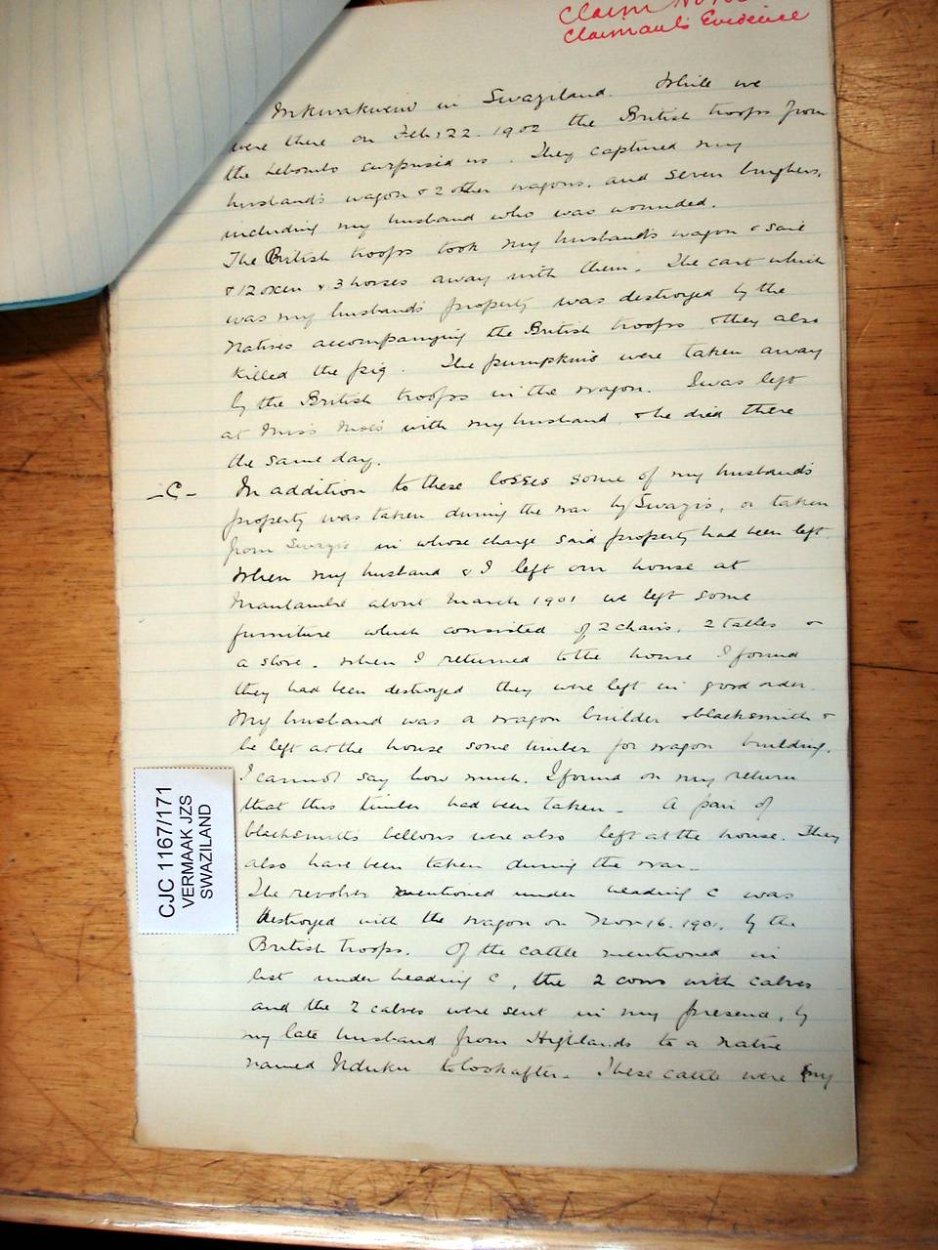 Claim No
Claimant's Evidence
in Swaziland. While we
were there on Feb: 22. 1902 the British troops from
the Lebombo surprised us. They captured my
husband's wagon & 2 other wagons, and seven burghers,
including my husband who was wounded.
The British troops took my husband's wagon & said
& 12 oxen & 3 horses away with them. The cart which
was my husband's property was destroyed by the
natives accompanying the British troops & they also
killed the pig. The pumpkins were taken away
by the British troops in the wagon. I was left
at Miss with my husband, & he died there
the same day.
-C- In addition to these losses some of my husband's
property was taken during the war by Swazis, or taken
from Swazis in whose charge said property had been left.
When my husband & I left our house at
about March 1901 we left some
furniture which consisted of 2 chairs, 2 tables &
a stove. When I returned to the house I found
they had been destroyed they were left in good order.
My husband was a wagon builder & blacksmith &
he left at the house some timber for wagon building.
I cannot say how much. I found on my return
that this timber had been taken. A pair of
blacksmith's bellows were also left at the house. They
also have been taken during the war.
The revolver mentioned under heading C was
destroyed with the wagon on Nov 16. 1901, by the
British troops. Of the cattle mentioned in
list under heading C, the 2 cows with calves
and the 2 calves were sent in my presence, by
my late husband from Highlands to a native
named Nduku to look after. These cattle were my
CJC 1167/171
VERMAAK JZS
SWAZILAND